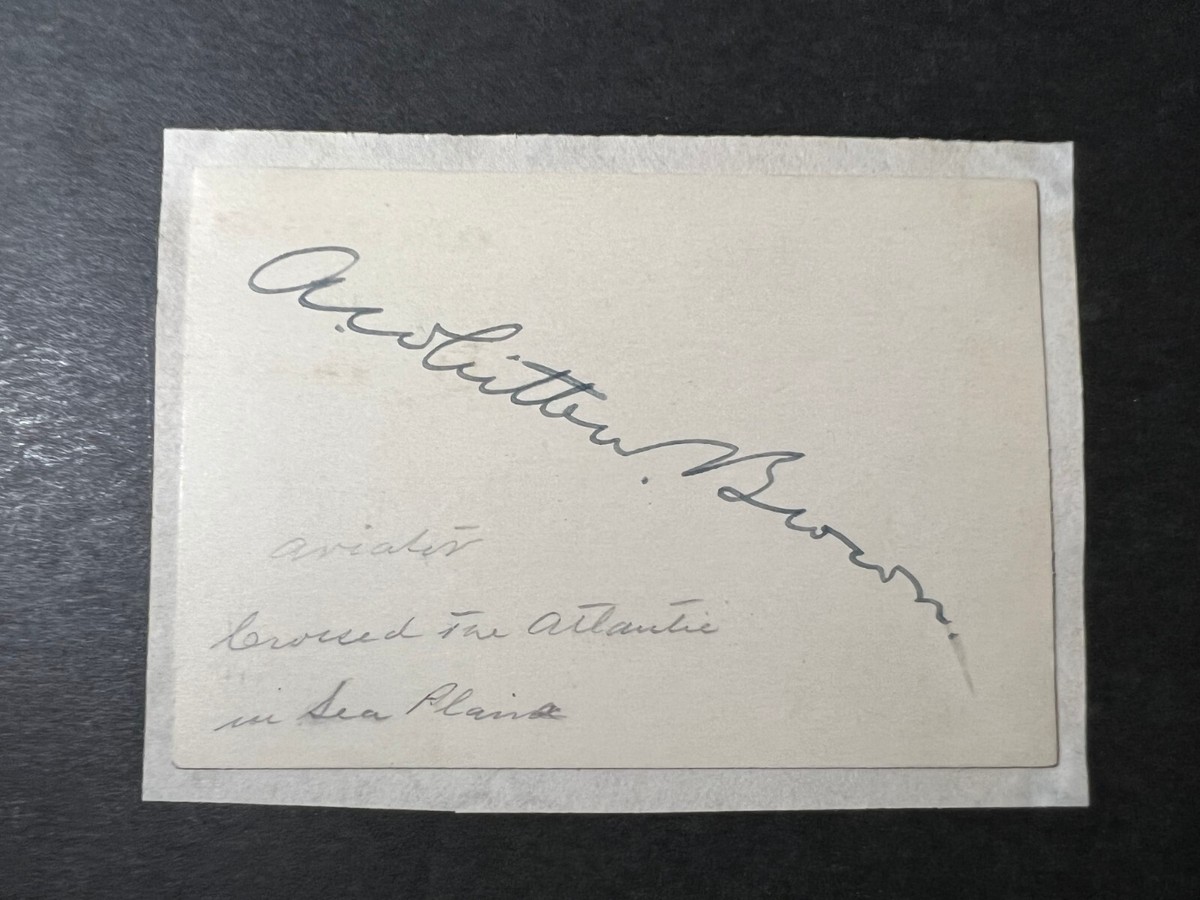 A. Whitten. Brown.
aviator
Crossed the Atlantic
in Sea Plane